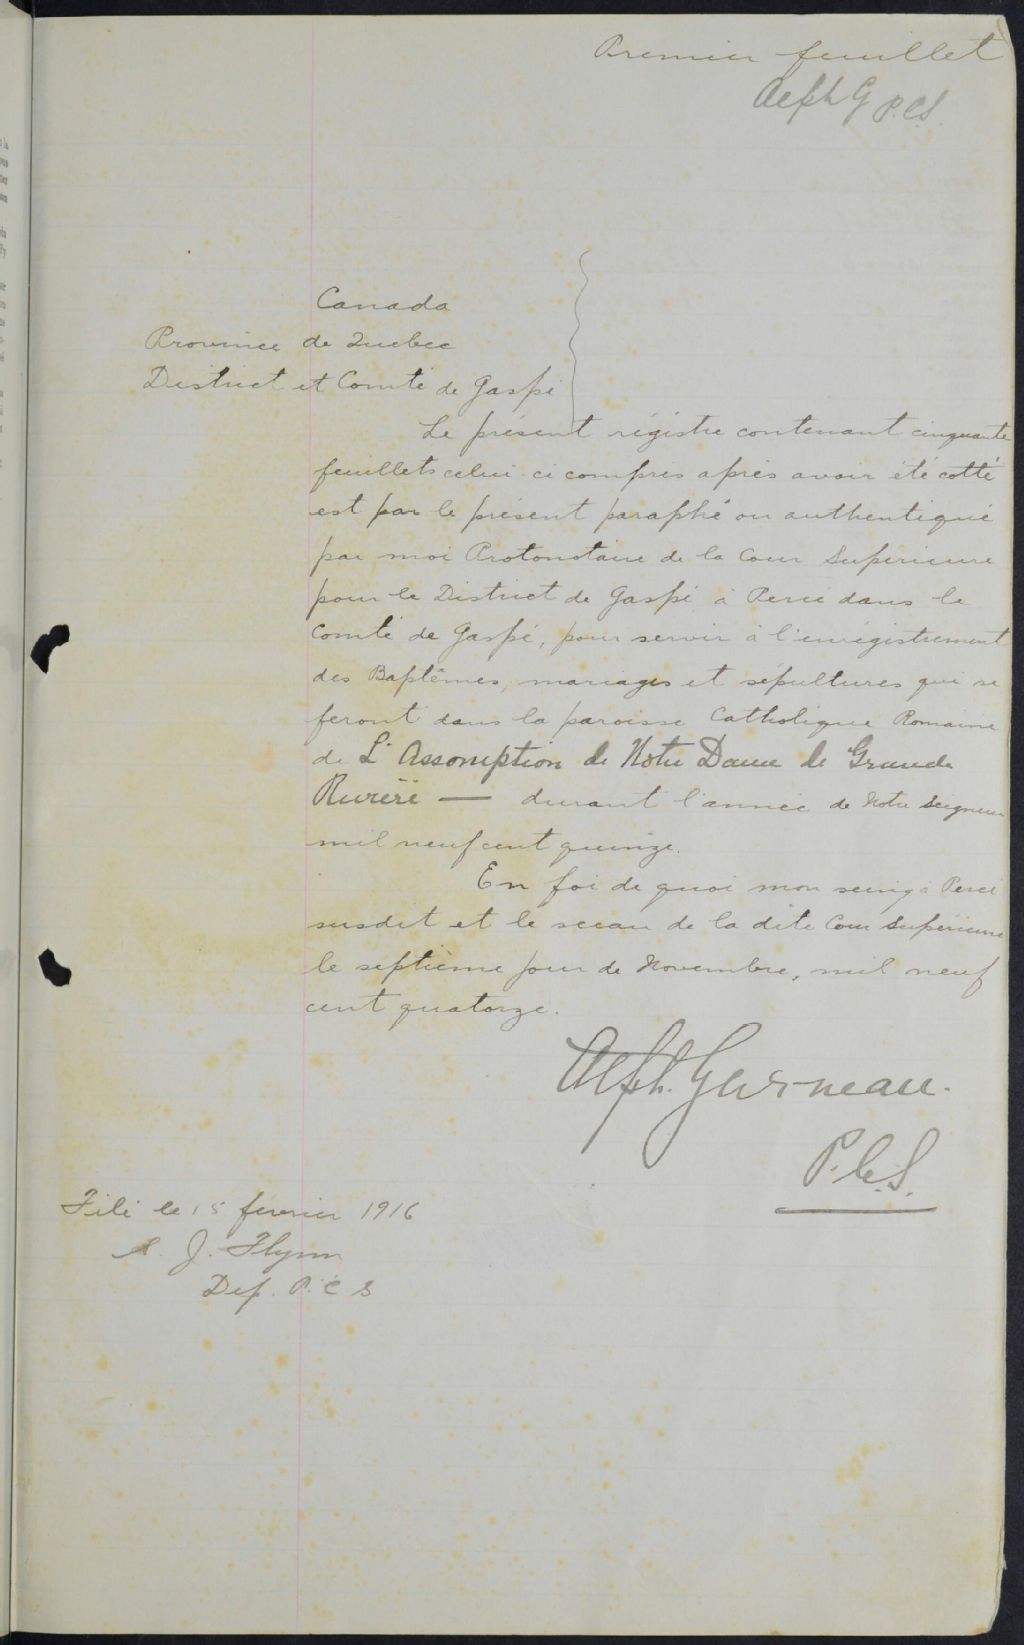 Premier feuillet
Alph G P.C.S.
Canada
Province de Quebec
District et Comté de Gaspé
Le présent régistre contenant cinquante
feuillets celui-ci compris après avoir été cotté
est par le présent paraphé ou authentiqué
par moi Protonotaire de la Cour Supérieure
pour le District de Gaspé à Percé dans le
Comté de Gaspé, pour servir à l'enrégistrement
des Baptêmes, mariages et sépultures qui se
feront dans la paroisse Catholique Romaine
de L'Assomption de Notre Dame de Grande
Rivière — durant l'année de Notre Seigneur
mil neuf cent quinze.
En foi de quoi mon seing à Percé
susdit et le sceau de la dite Cour Supérieure
le septième jour de Novembre, mil neuf
cent quatorze.
Alph. Garneau.
P.C.S.
Filé le 15 fevrier 1916
J. Flynn
Dep. P.C.S